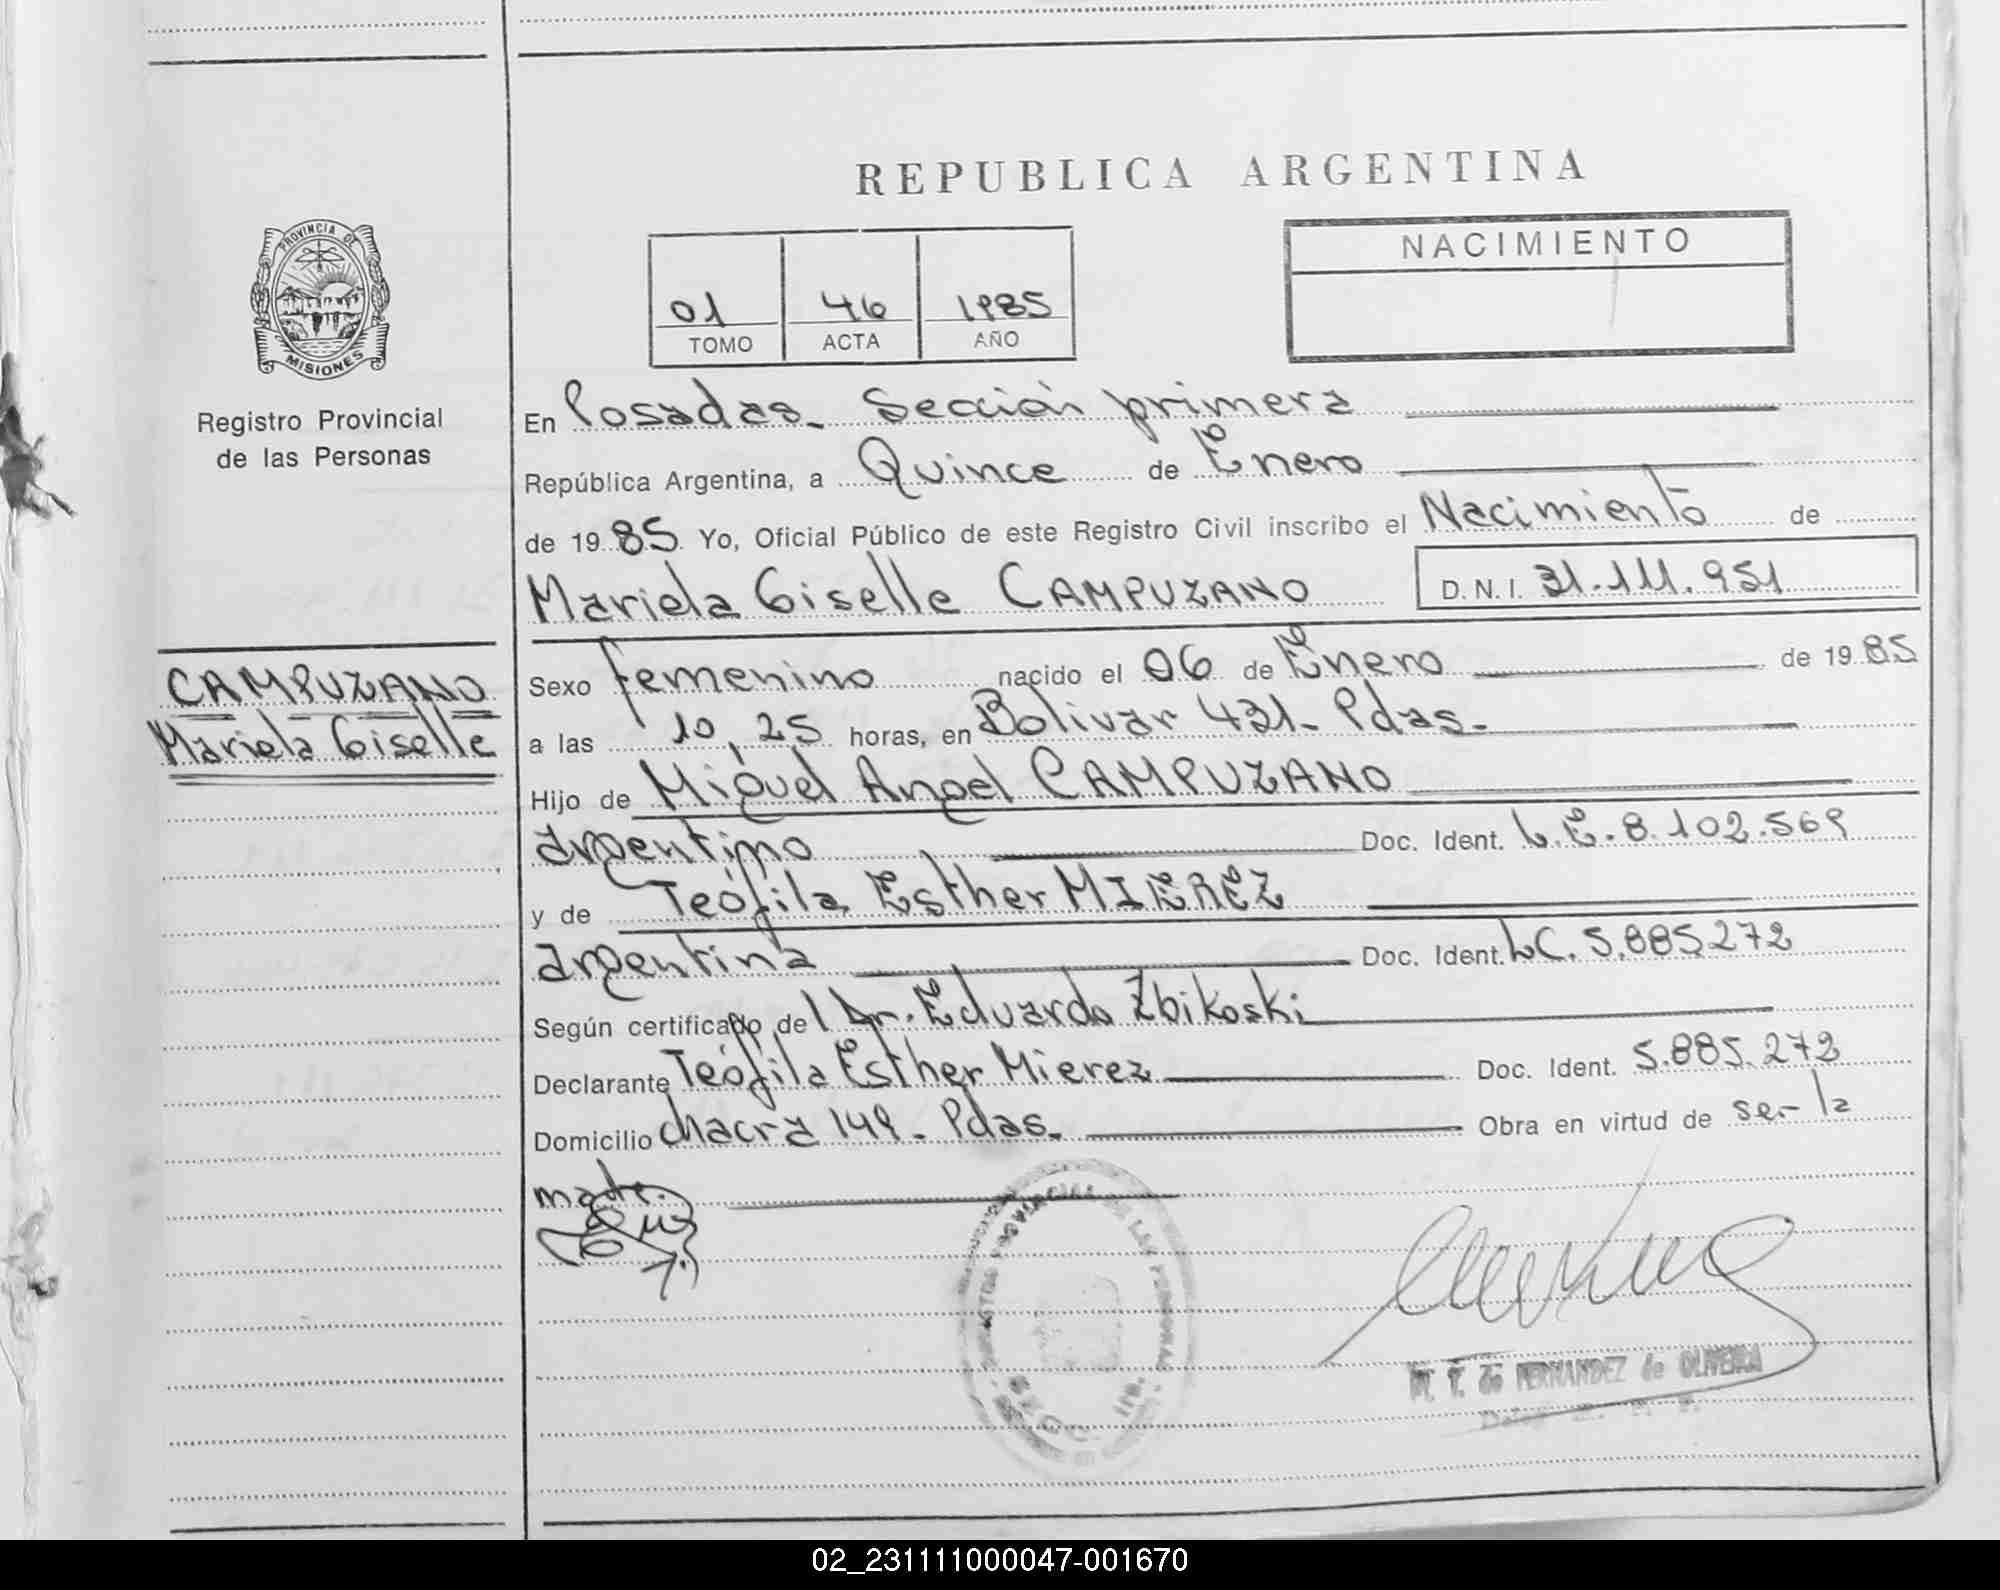 REPUBLICA ARGENTINA
PROVINCIA DE
MISIONES
Registro Provincial
de las Personas
NACIMIENTO
01 46 1985
TOMO ACTA AÑO
En Posadas - Sección primera
República Argentina, a Quince de Enero
de 1985 Yo, Oficial Público de este Registro Civil inscribo el Nacimiento de
Mariela Giselle CAMPUZANO D.N.I. 31.111.951
CAMPUZANO
Mariela Giselle
Sexo femenino nacido el 06 de Enero de 1985
a las 10,25 horas, en Bolivar 431- Pdas.
Hijo de Miguel Angel CAMPUZANO
argentino Doc. Ident. L.E. 8.102.569
y de Teófila Esther MIEREZ
argentina Doc. Ident. LC. 5.885.272
Según certificado del Dr. Eduardo Zbikoski
Declarante Teófila Esther Mierez Doc. Ident. 5.885.272
Domicilio chacra 149 - Pdas. Obra en virtud de ser la
madre.
de FERNANDEZ de OLIVEIRA
02_231111000047-001670